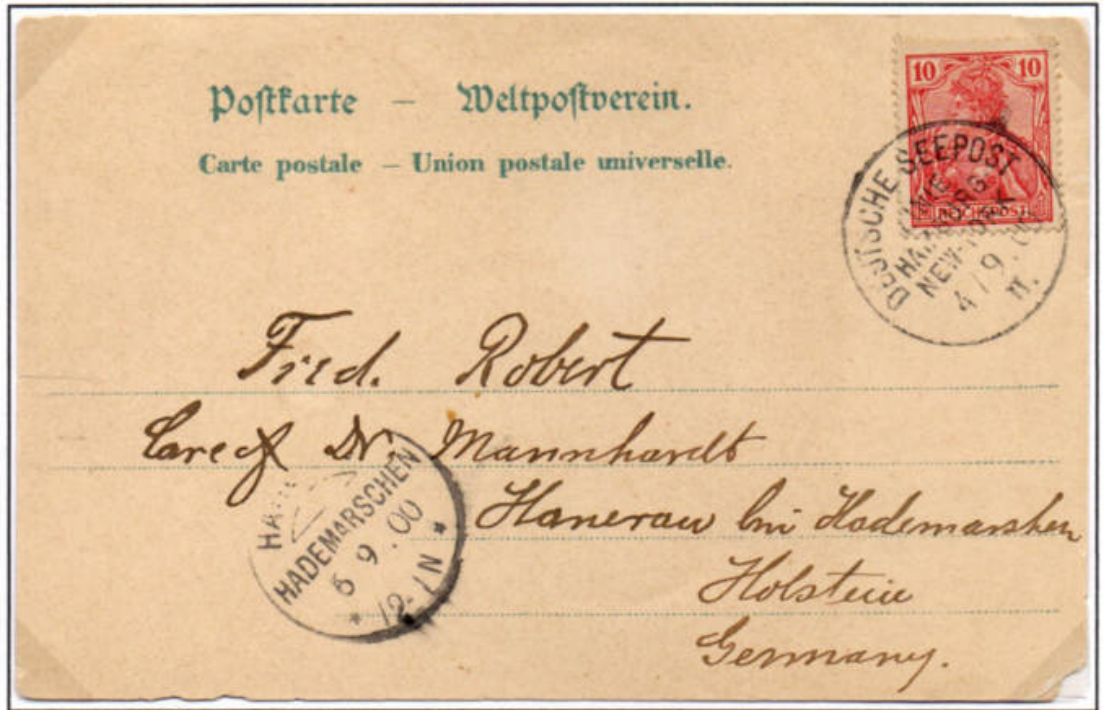 Postkarte – Weltpostverein.
Carte postale – Union postale universelle.
10 10
REICHSPOST
DEUTSCHE SEEPOST
LINIE
HAMBURG
NEW-YORK
4/9.00
II.
Fred. Robert
Care of Dr. Mannhardt
Hanerau bei Hademarshen
Holstein
Germany.
HADEMARSCHEN
5 9.00
* 12-1N *